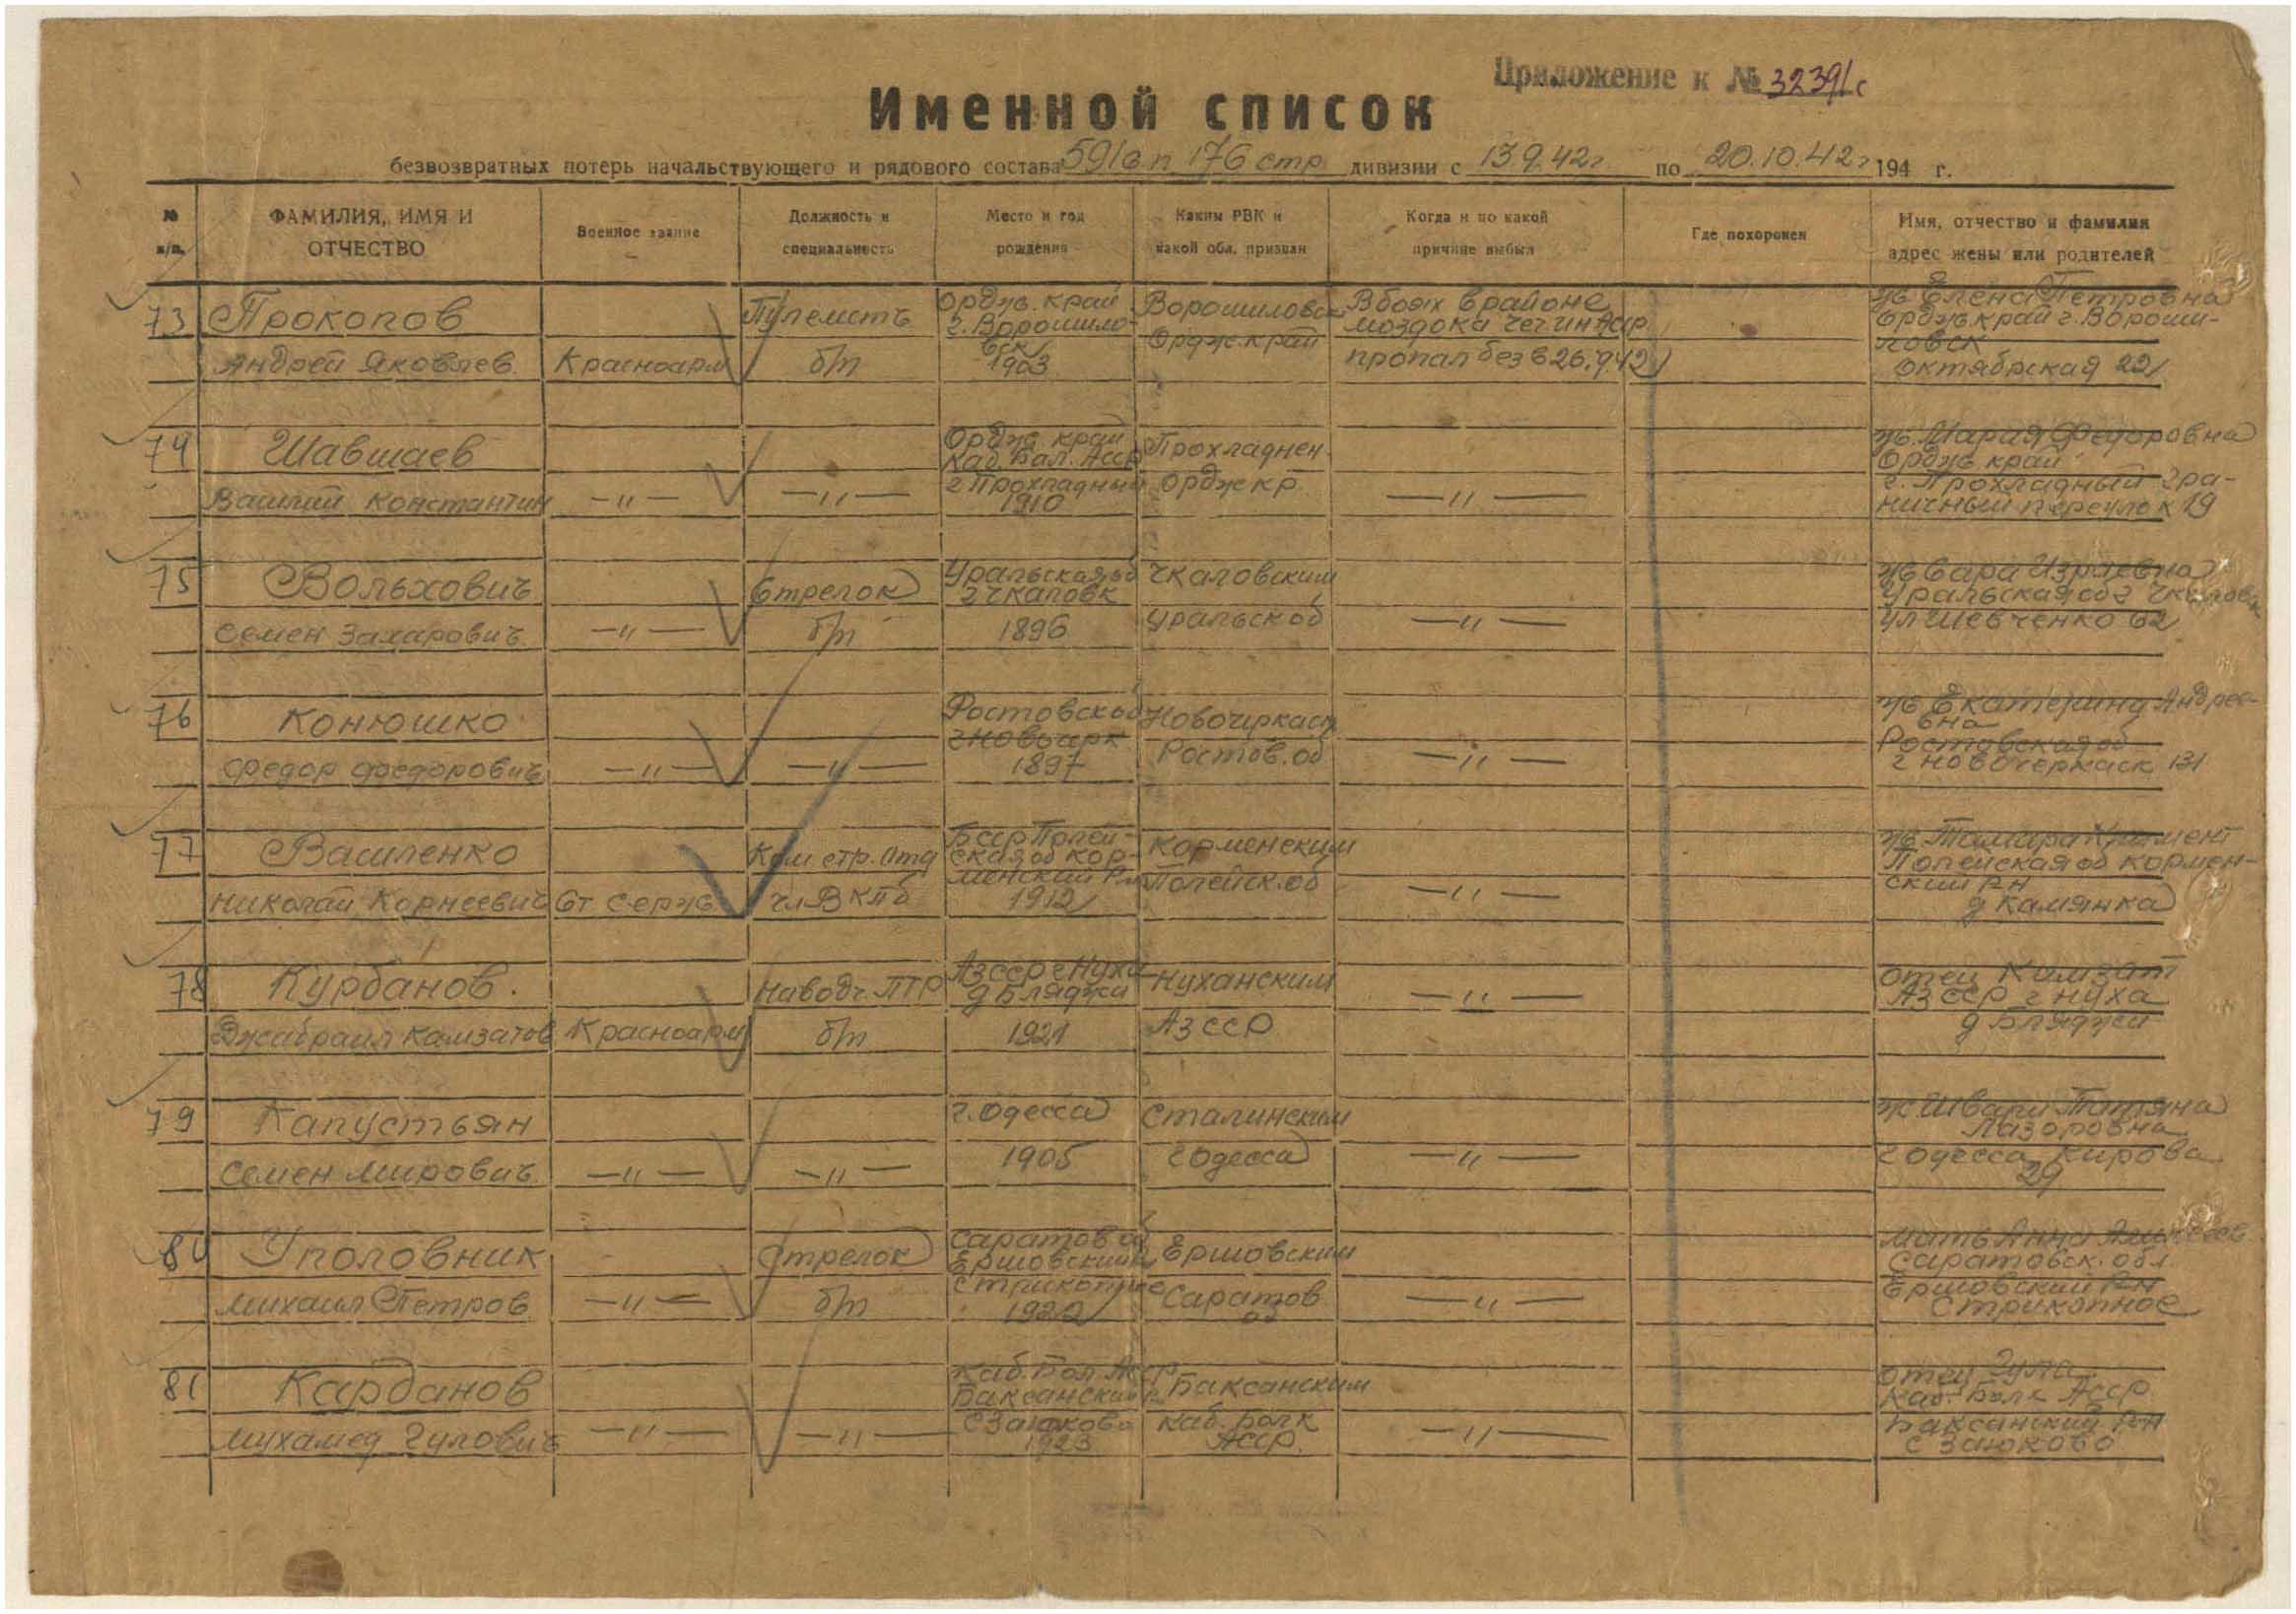 Приложение к № 3239/с
Именной список
безвозвратных потерь начальствующего и рядового состава 591 с п 176 стр дивизии с 13.9.42г. по 20.10.42г 194 г.
№ п/п. ФАМИЛИЯ, ИМЯ И ОТЧЕСТВО Военное звание Должность и специальность Место и год рождения Каким РВК и какой обл. призван Когда и по какой причине выбыл Где похоронен Имя, отчество и фамилия адрес жены или родителей
73 Прокопов Пулеметч Ордж. край Ворошиловск В боях в районе ж Елена Петровна
г. Ворошило- моздока чечинАсср Ордж край г. Вороши-
вск Ордж. край ловск
Андрей Яковлев. Красноарм б/п 1903 пропал без в 26.9.42 Октябрская 22
74 Шавшаев Ордж край Прохладнен. ж. Мария Федоровна
Каб. Бал. Асср Ордж край
г Прохладный Ордж кр г. Прохладный Гра-
Василий Константин —〃— —〃— 1910 —〃— ничный переулок 19
75 Вольхович Стрелок Уральская об Чкаловским ж Сара
г Чкаловк Уральская об г Чкаловк
Семен Захарович —〃— б/п 1896 Уральск об —〃— ул Шевченко 62
76 Конюшко Ростовск об Новочеркаск ж Екатерина Андрее-
вна
Ростовская об
Федор Федорович —〃— —〃— 1897 Ростов. об —〃— г новочеркаск 131
77 Василенко Ком стр. отд Бср Полей- Корменским ж Тамара
ская об кор- Полейская об Кормен-
менский Р-н Полейск. об ский Р-н
Николай Корнеевич Ст Серж чл ВКПб 1912 —〃— д Камянка
78 Курбанов. Наводч. ПТР АзССР г Нуха Нуханским отец Камзат
д Бляджи АзССР г Нуха
Джабраил Камзатов Красноарм б/п 1921 АзССР —〃— д Бляджи
79 Капустьян г. Одесса Сталинским ж Шварц Татяна
Лазоровна
Семен Мирович —〃— —〃— 1905 г Одесса —〃— г Одесса Кирова
29
80 Уполовник Стрелок Саратов об Ершовским мать Анна
Ершовский Саратовск. обл
Ершовский Р-н
Михаил Петров —〃— б/п 1922 Саратов об —〃— Стрикопное
81 Карданов Каб. Бол Асср Баксанским отец Гула
Баксанский Каб. Балк Асср
с Заюково Каб. Балк Баксанский Р-н
Мухамед Гулович —〃— —〃— 1923 Асср. —〃— с Заюково